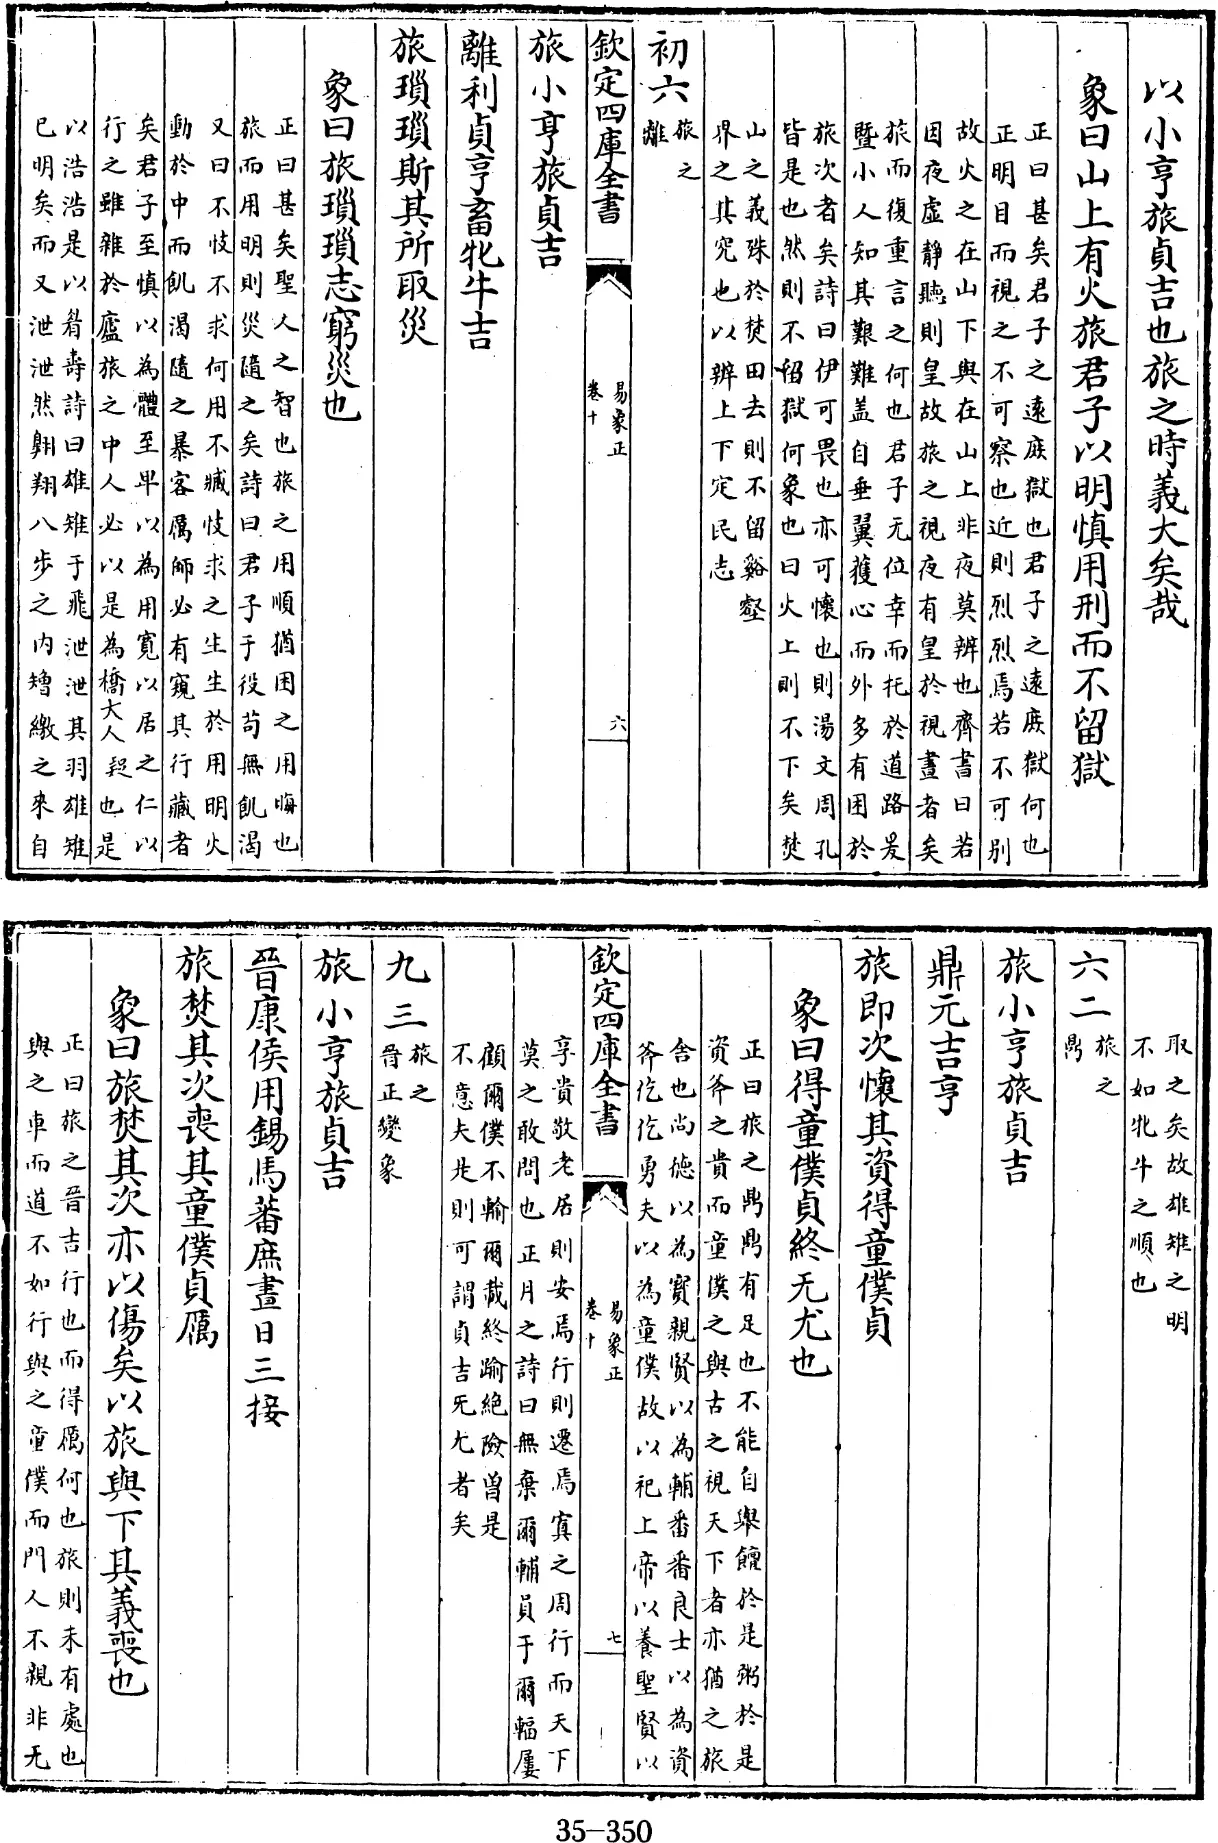 以小亨旅貞吉也旅之時義大矣哉
象曰山上有火旅君子以明慎用刑而不留獄
正曰甚矣君子之遠庻獄也君子之遠庻獄何也
正明目而視之不可察也近則烈烈焉若不可别
故火之在山下與在山上非夜莫辨也齊書曰若
因夜虚靜聽則皇故旅之視夜有皇於視晝者矣
旅而復重言之何也君子无位幸而托於道路爰
暨小人知其艱難盖自垂翼獲心而外多有困於
旅次者矣詩曰伊可畏也亦可懷也則湯文周孔
皆是也然則不留獄何象也曰火上則不下矣焚
山之義殊於焚田去則不留谿壑
界之其究也以辨上下定民志
初六旅之
離
欽定四庫全書
易象正
卷十
六
旅小亨旅貞吉
離利貞亨畜牝牛吉
旅瑣瑣斯其所取災
象曰旅瑣瑣志窮災也
正曰甚矣聖人之智也旅之用順猶困之用晦也
旅而用明則災隨之矣詩曰君子于役茍無飢渴
又曰不忮不求何用不臧忮求之生生於用明火
動於中而飢渴隨之暴客厲師必有窺其行藏者
矣君子至慎以為體至卑以為用寛以居之仁以
行之雖離於廬旅之中人必以是為橋大人 也是
以浩浩是以耈壽詩曰雄雉于飛泄泄其羽雄雉
已明矣而又泄泄然翺翔八步之内矰繳之來自
取之矣故雄雉之明
不如牝牛之順也
六二旅之
鼎
旅小亨旅貞吉
鼎元吉亨
旅即次懷其資得童僕貞
象曰得童僕貞終无尤也
正曰旅之鼎鼎有足也不能自舉饘於是粥於是
資斧之貴而童僕之與古之視天下者亦猶之旅
舍也尚徳以為寳親賢以為輔番番良士以為資
斧仡仡勇夫以為童僕故以祀上帝以養聖賢以
欽定四庫全書
易象正
卷十
七
享貴敬老居則安焉行則遷焉寘之周行而天下
莫之敢問也正月之詩曰無棄爾輔員于爾輻屢
顧爾僕不輸爾載終踰絶險曽是
不意夫是則可謂貞吉旡尤者矣
九三旅之
晉正變象
旅小亨旅貞吉
晉康侯用錫馬蕃庶晝日三接
旅焚其次喪其童僕貞厲
象曰旅焚其次亦以傷矣以旅與下其義喪也
正曰旅之晉吉行也而得厲何也旅則未有處也
與之車而道不如行與之童僕而門人不親非无
35-350